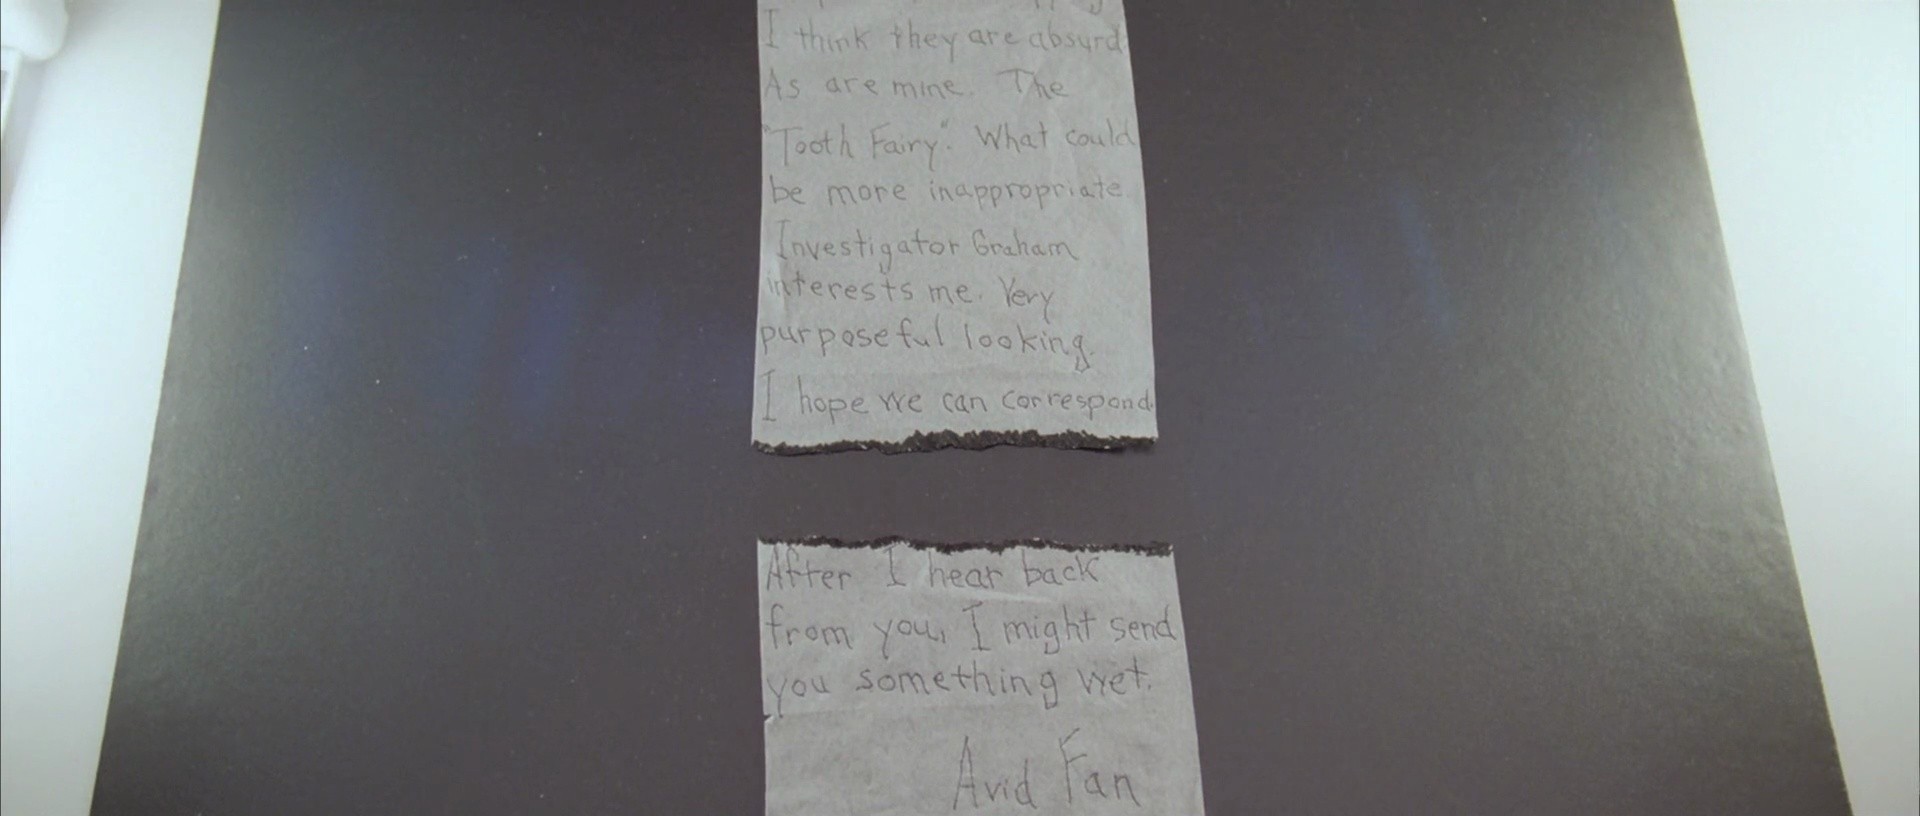 I think they are absurd.
As are mine. The
"Tooth Fairy". What could
be more inappropriate.
Investigator Graham
interests me. Very
purposeful looking.
I hope we can correspond.
After I hear back
from you, I might send
you something wet.
Avid Fan